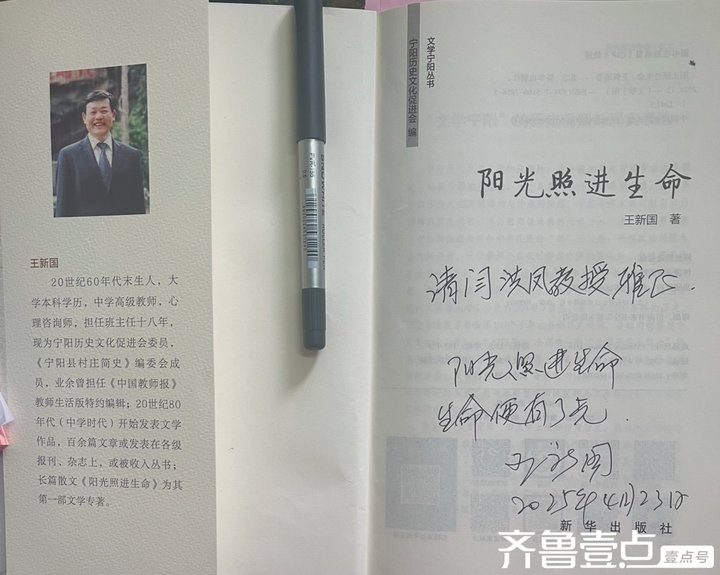 王新国
20世纪60年代末生人，大
学本科学历，中学高级教师，心
理咨询师，担任班主任十八年，
现为宁阳历史文化促进会委员，
《宁阳县村庄简史》编委会成
员，业余曾担任《中国教师报》
教师生活版特约编辑；20世纪80
年代（中学时代）开始发表文学
作品，百余篇文章或发表在各级
报刊、杂志上，或被收入丛书；
长篇散文《阳光照进生命》为其
第一部文学专著。
文学宁阳丛书
宁阳历史文化促进会 编
阳光照进生命
王新国 著
请闫洪凤教授雅正.
阳光照进生命
生命便有了光.
王新国
2025年4月23日
新华出版社
齐鲁壹点
壹点号